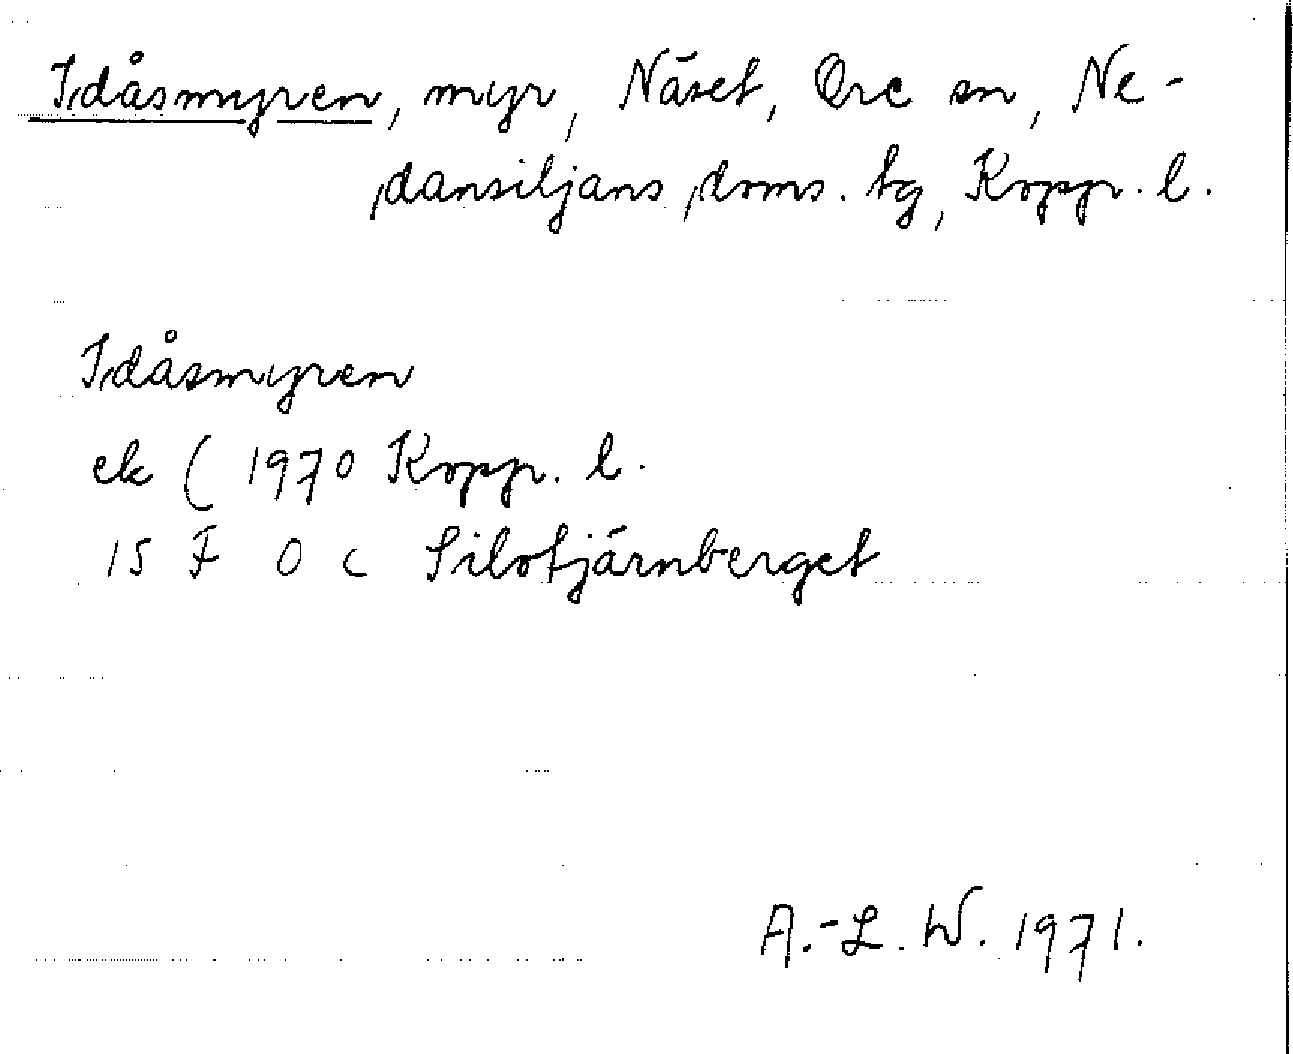 Idåsmyren, myr, Näset, Ore sn, Ne-
dansiljans doms. tg, Kopp. l.
Idåsmyren
ek (1970 Kopp. l.
15 F 0 c Silotjärnberget
A.-L. W. 1971.